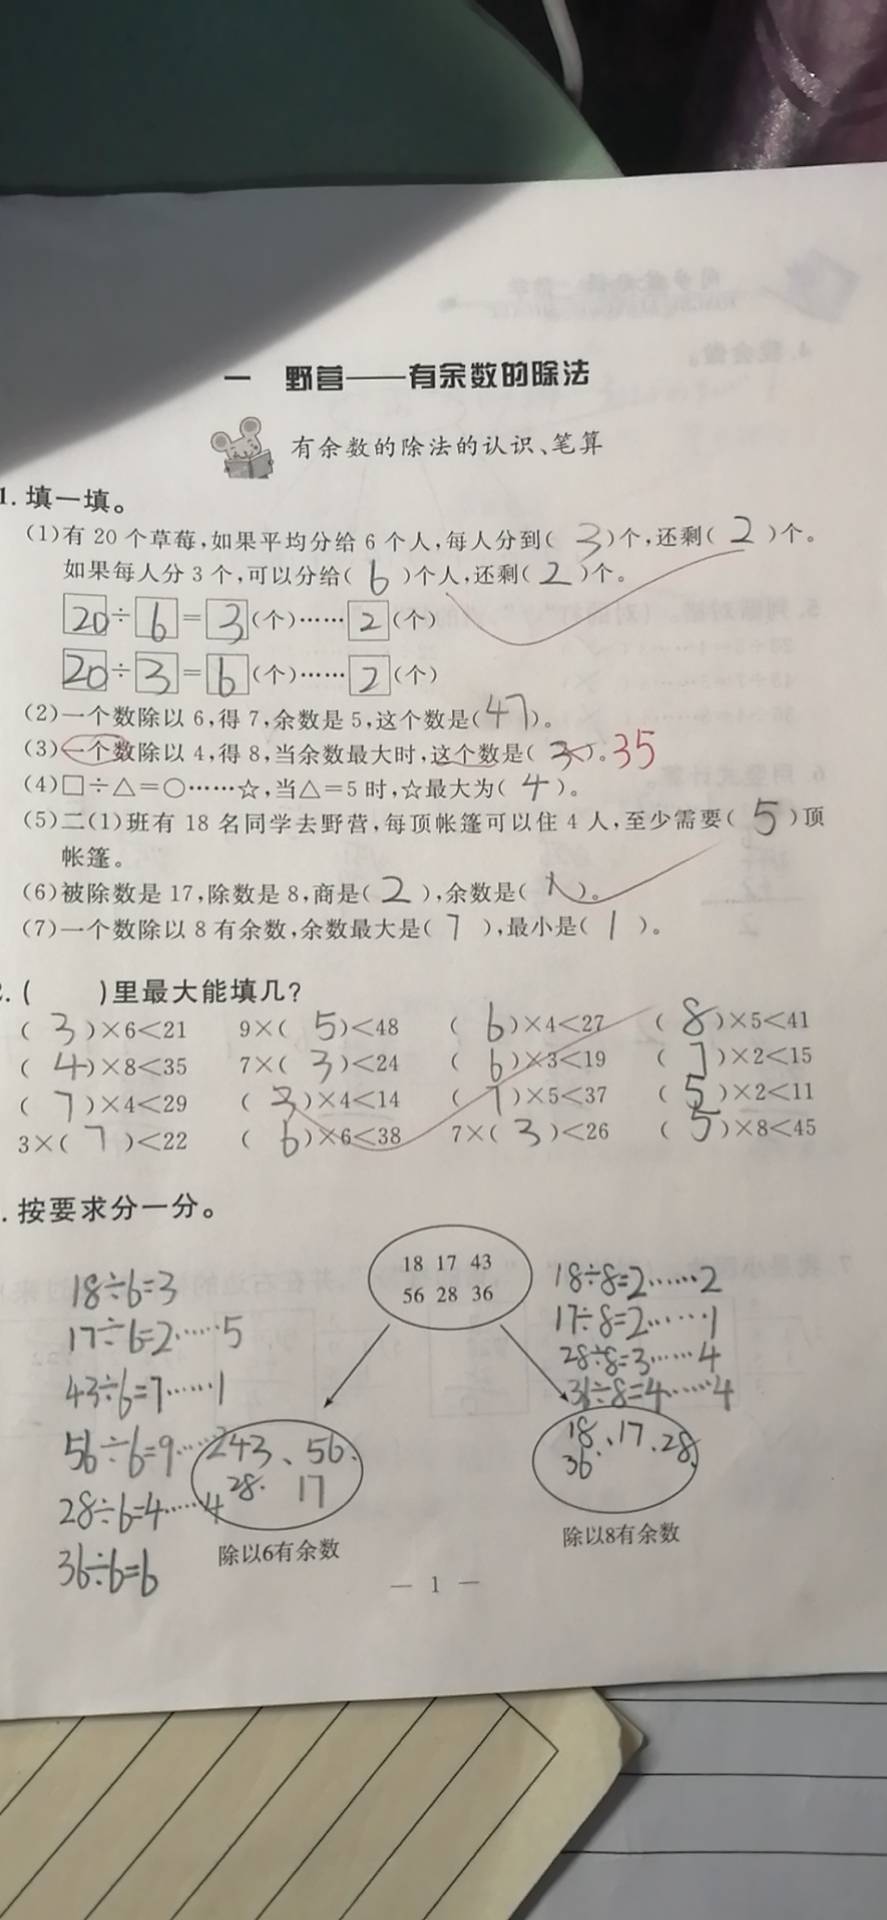 一 野营——有余数的除法
有余数的除法的认识、笔算
1. 填一填。
(1)有 20 个草莓,如果平均分给 6 个人,每人分到( 3 )个,还剩( 2 )个。
如果每人分 3 个,可以分给( 6 )个人,还剩( 2 )个。
20÷6=3(个)……2(个)
20÷3=6(个)……2(个)
(2)一个数除以 6,得 7,余数是 5,这个数是( 47 )。
(3)一个数除以 4,得 8,当余数最大时,这个数是( 3 )。35
(4)□÷△=○……☆,当△=5 时,☆最大为( 4 )。
(5)二(1)班有 18 名同学去野营,每顶帐篷可以住 4 人,至少需要( 5 )顶
帐篷。
(6)被除数是 17,除数是 8,商是( 2 ),余数是( 1 )。
(7)一个数除以 8 有余数,余数最大是( 7 ),最小是( 1 )。
2. ( )里最大能填几?
( 3 )×6<21 9×( 5 )<48 ( 6 )×4<27 ( 8 )×5<41
( 4 )×8<35 7×( 3 )<24 ( 6 )×3<19 ( 7 )×2<15
( 7 )×4<29 ( 3 )×4<14 ( 7 )×5<37 ( 5 )×2<11
3×( 7 )<22 ( 6 )×6<38 7×( 3 )<26 ( 5 )×8<45
. 按要求分一分。
18 17 43
56 28 36
18÷6=3
17÷6=2……5
43÷6=7……1
56÷6=9……2
28÷6=4……4
36÷6=6
43、56、
28. 17
除以6有余数
18÷8=2……2
17÷8=2……1
28÷8=3……4
36÷8=4……4
18、17、28、
36
除以8有余数
— 1 —